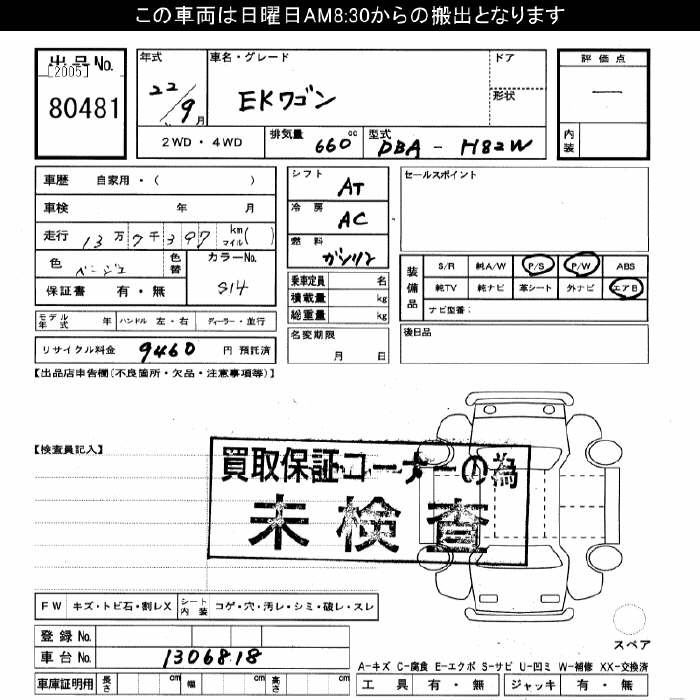 この車両は日曜日AM8:30からの搬出となります
出品No.
[2005]
80481
年式
22/9月
車名・グレード
EKワゴン
ドア
形状
評価点
—
内装
2WD・4WD
排気量 660cc
型式 DBA-H82W
車歴 自家用・( )
車検 年 月
走行 13万7千397 km マイル( )
色 ベージュ
色替
カラーNo.
S14
保証書 有・無
シフト AT
冷房 AC
燃料 ガソリン
乗車定員 名
積載量 kg
総重量 kg
セールスポイント
装備品
S/R 純A/W P/S P/W ABS
純TV 純ナビ 革シート 外ナビ エアB
ナビ型番:
モデル年式 年 ハンドル 左・右 ディーラー・並行
名変期限
月 日
後日品
リサイクル料金 9460 円 預託済
【出品店申告欄(不良箇所・欠品・注意事項等)】
【検査員記入】
買取保証コーナーの為
未検査
FW キズ・トビ石・割レX シート内装 コゲ・穴・汚レ・シミ・破レ・スレ
登録No.
車台No. 1306818
スペア
車庫証明用 長さ cm 幅 cm 高さ cm
A-キズ C-腐食 E-エクボ S-サビ U-凹ミ W-補修 XX-交換済
工具 有・無 ジャッキ 有・無